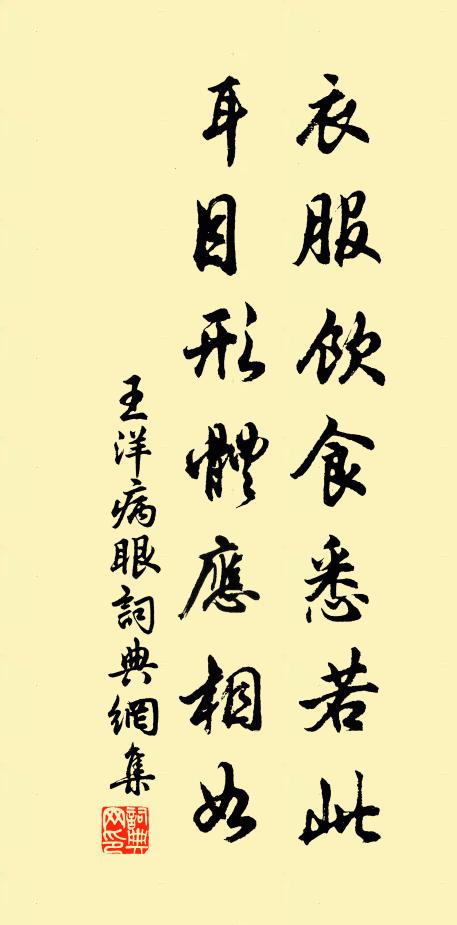 衣服飲食悉若此
耳目形體應相如
王洋病眼詞典網集
詞典網印